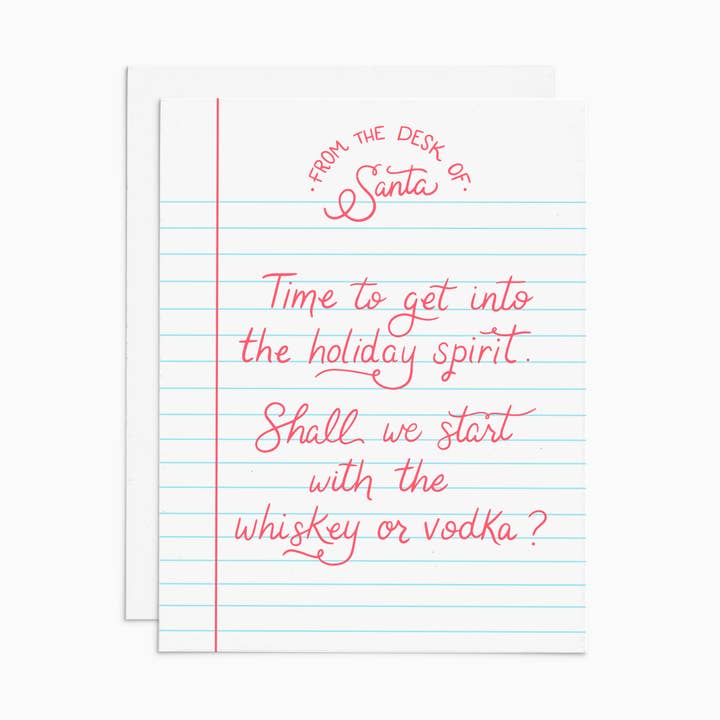 ·FROM THE DESK OF·
Santa
Time to get into
the holiday spirit.
Shall we start
with the
whiskey or vodka?